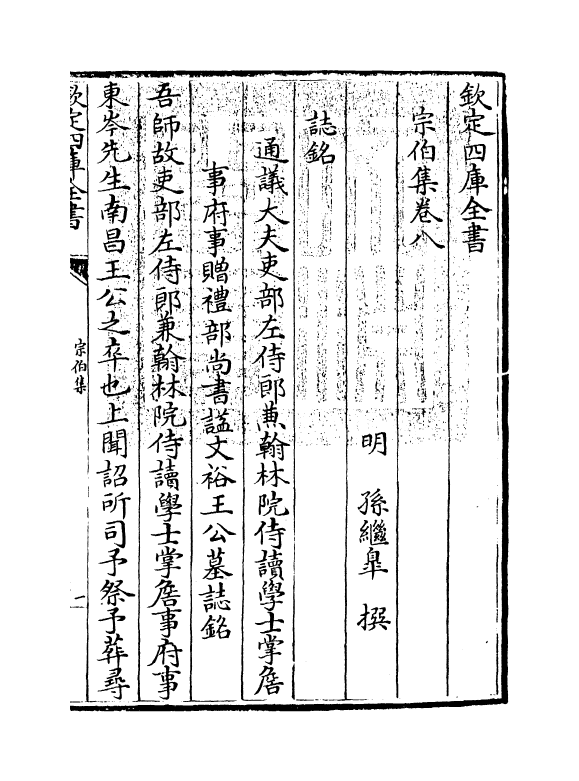 欽定四庫全書
宗伯集卷八
明 孫繼臯 撰
誌銘
通議大夫吏部左侍郎兼翰林院侍讀學士掌詹
事府事贈禮部尚書諡文裕王公墓誌銘
吾師故吏部左侍郎兼翰林院侍讀學士掌詹事府事
東岑先生南昌王公之卒也上聞詔所司予祭予葬尋
欽定四庫全書
宗伯集
一